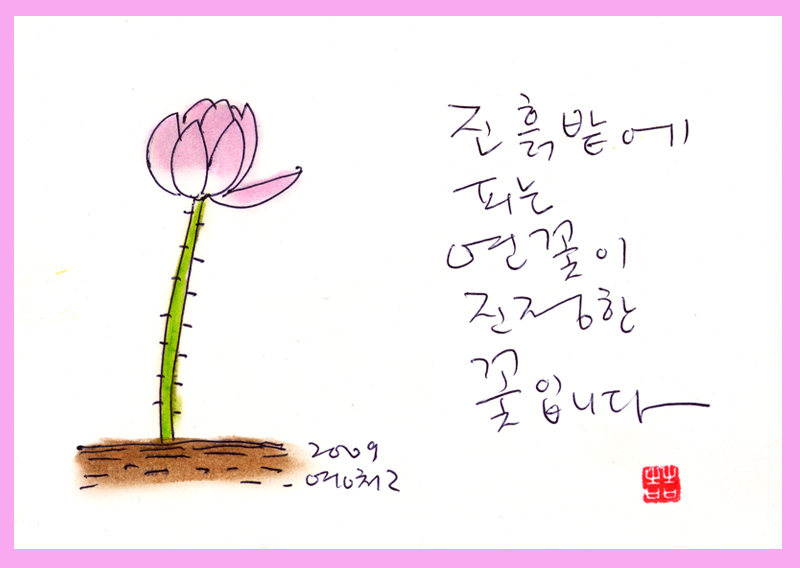 진흙밭에
피는
연꽃이
진정한
꽃입니다
2009